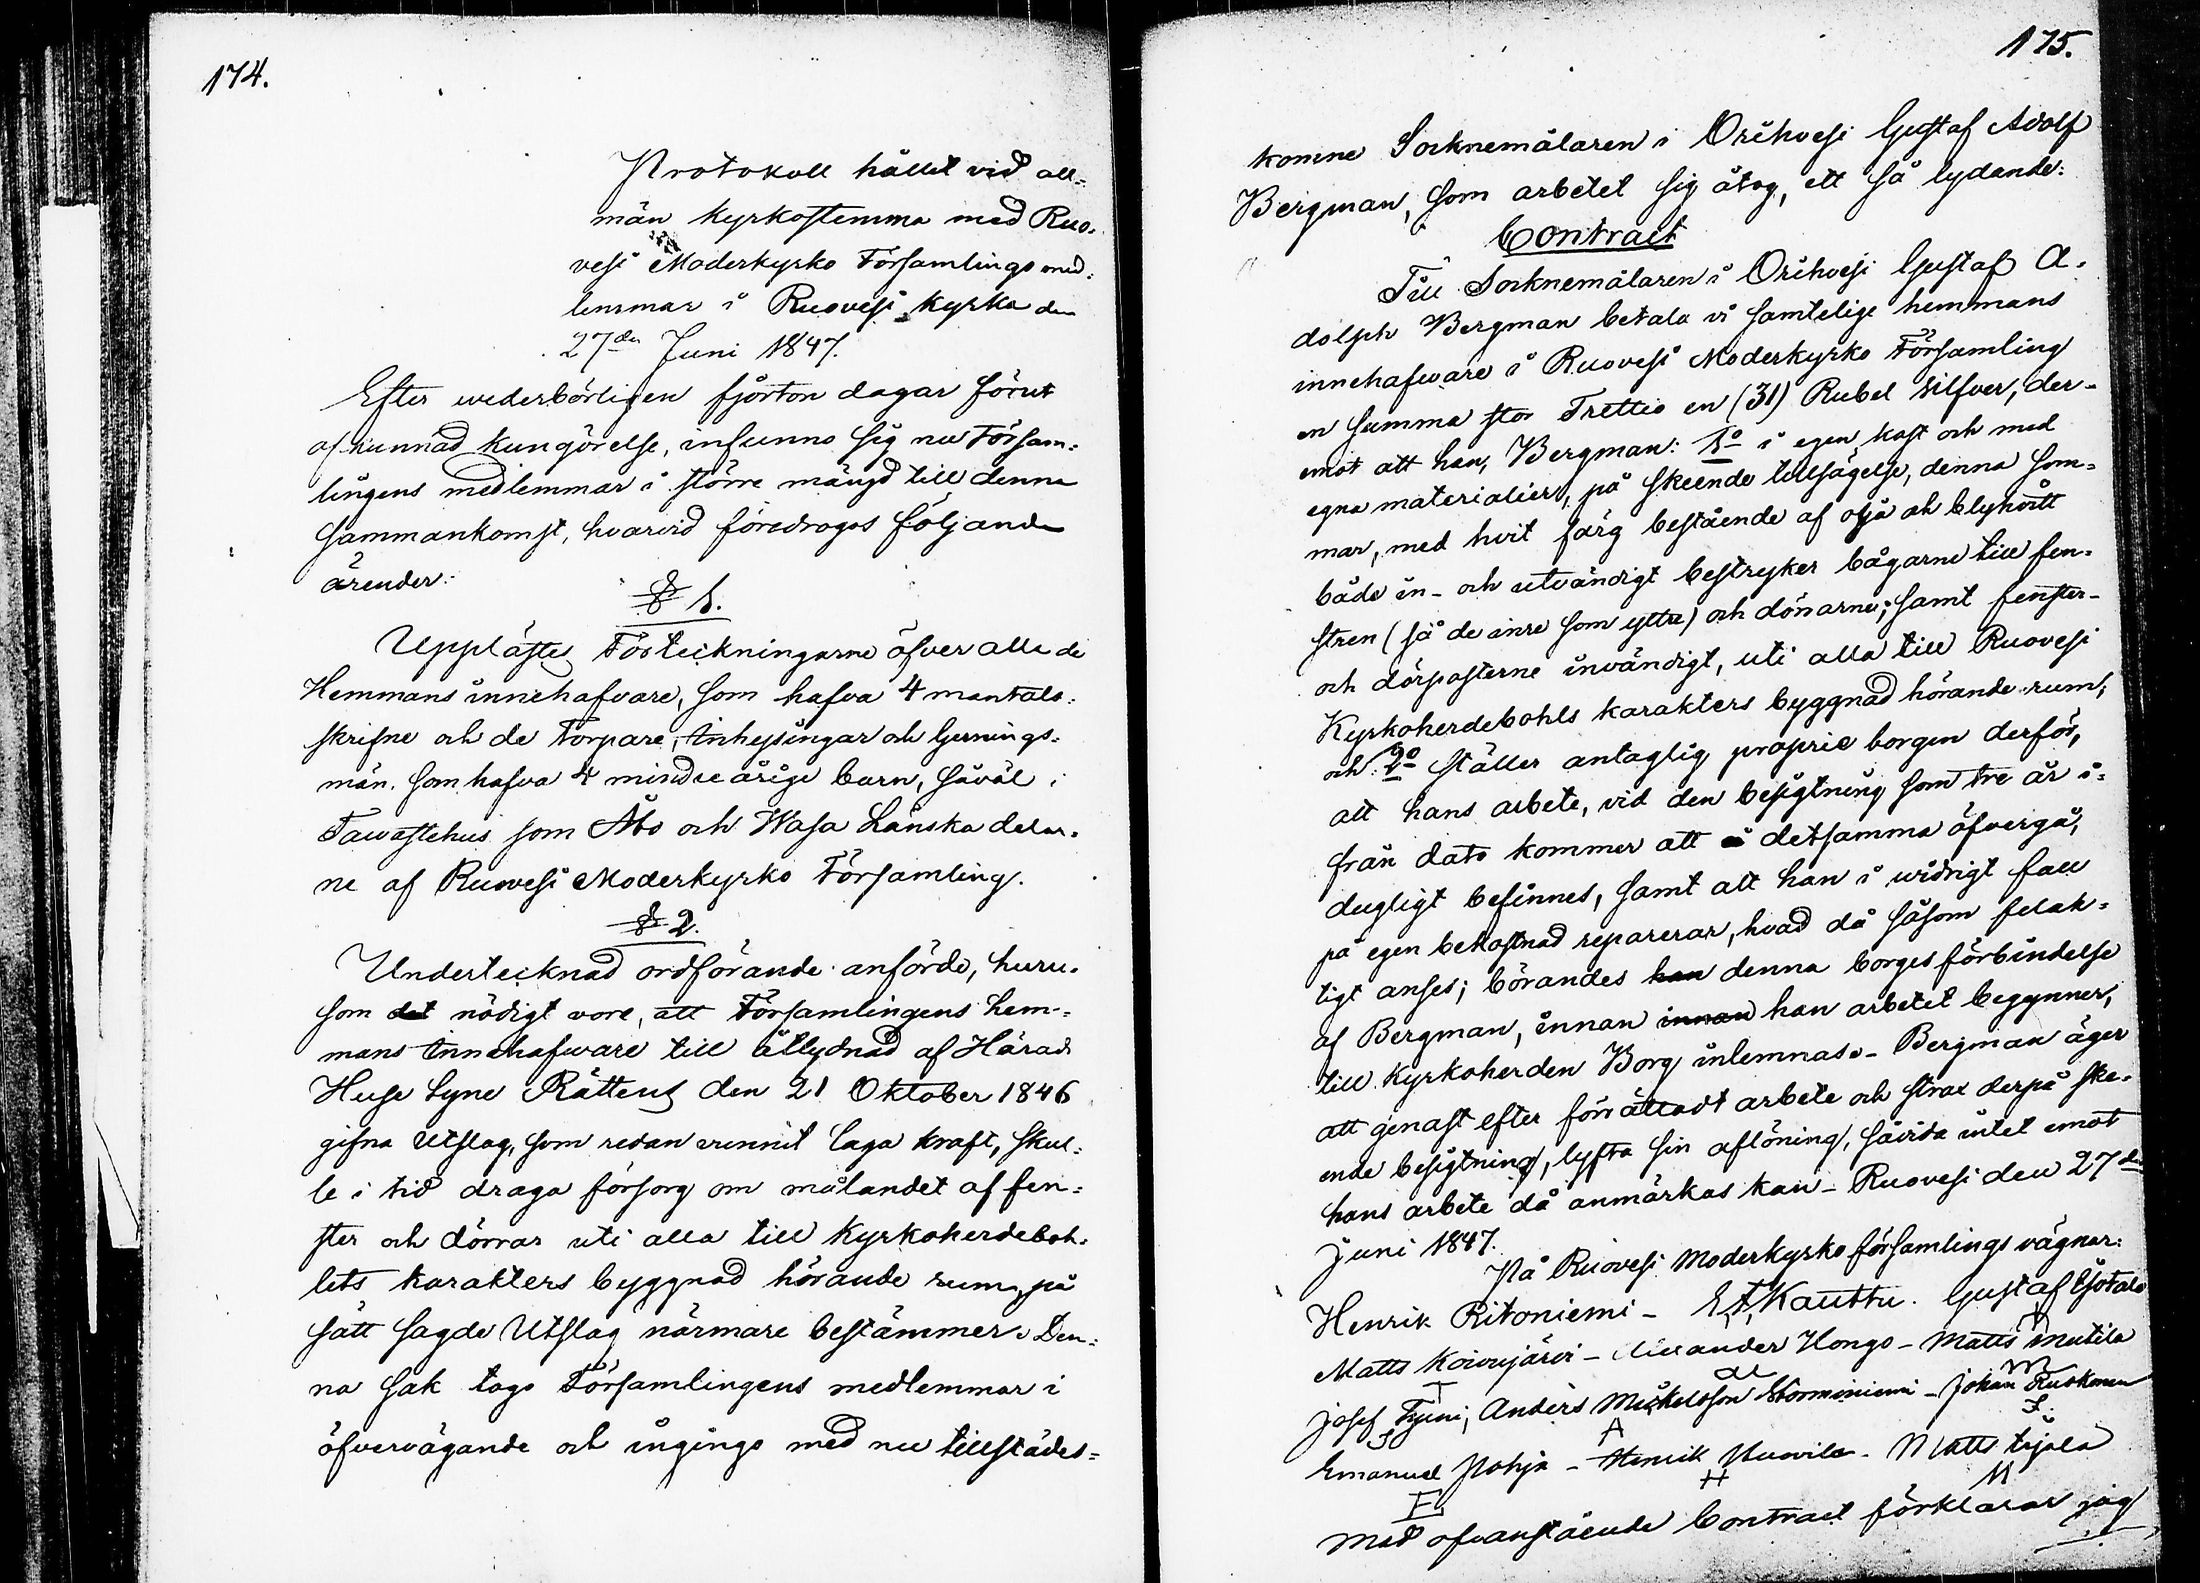 174.
Protokoll hållet vid all-
män kyrkostemma med Ruo-
vesi Moderkyrko Församlings med-
lemmar i Ruovesi kyrka den
27den Juni 1847.
Efter wederbörligen fjorton dagar förut
afkunnad kungörelse, infunno sig nu Försam-
lingens medlemmar i större mängd till denna
sammankomst, hvarvid föredrogos följande
ärender:
§ 1.
Upplästes Förteckningarne öfver alla de
Hemmans innehafvare, som hafva 4 mantals-
skrifne och de Torpare, Inhysingar och Gernings-
män, som hafva 4 minderårige barn, såväl i
Tawastehus som Åbo och Wasa Länska delar-
ne af Ruovesi Moderkyrko Församling.
§ 2.
Undertecknad ordförande anförde, huru-
som det nödigt vore, att Församlingens hem-
mans Innehafware till åtlydnad af Härads
Huse Syne Rättens den 21 Oktober 1846
gifna Utslag, som redan vunnit laga kraft, skul-
le i tid draga försorg om målandet af fen-
ster och dörrar uti alla till Kyrkoherdeboh-
lets karakters byggnad hörande rum, på
sätt sagde Utslag närmare bestämmer. Den-
na sak togo Församlingens medlemmar i
öfvervägande och ingingo med nu tillstädes-
175.
komne Socknemålaren i Orihvesi Gustaf Adolf
Bergman, som arbetet sig åtog, ett så lydande:
Contract
Till Socknemålaren i Orihvesi Gustaf A-
dolph Bergman betala vi samtelige hemmans
innehafware i Ruovesi Moderkyrko Församling
en summa stor Trettio en (31) Rubel Silfver, der-
emot att han, Bergman: 1o i egen kost och med
egna materialier, på skeende tillsägelse, denna som-
mar, med hvit färg bestående af olja och blyhvitt
både in- och utvändigt bestryker bågarne till fen-
stren (så de inre som yttre) och dörrarne; samt fenster-
och dörrposterne invändigt, uti alla till Ruovesi
Kyrkoherdebohls karakters byggnad hörande rum;
och 2o ställer antaglig proprie borgen derför,
att hans arbete, vid den besigtning som tre år i-
från dato kommer att å detsamma öfvergå,
dugligt befinnes, samt att han i widrigt fall
på egen bekostnad reparerar, hvad då såsom felak-
tigt anses; börandes han denna borgesförbindelse
af Bergman, innan innan han arbetet begynner,
till Kyrkoherden Borg inlemnas. - Bergman äger
att genast efter förrättadt arbete och strax derpå ske-
ende besigtning, lyfta sin aflöning, såvida intet emot
hans arbete då anmärkas kan - Ruovesi den 27de
Juni 1847.
På Ruovesi Moderkyrko församlings vägnar:
Henrik Ritoniemi - E. A. Kauttu. Gustaf
Matts Koivujärvi - Alexander Hongo - Matts Mutila
Josef Anders Mickelsson Storminiemi - Johan Ruskonen
Emanuel Pohja - Henrik - Matts
A H M
E
Med ofvanstående Contract förklarar jag